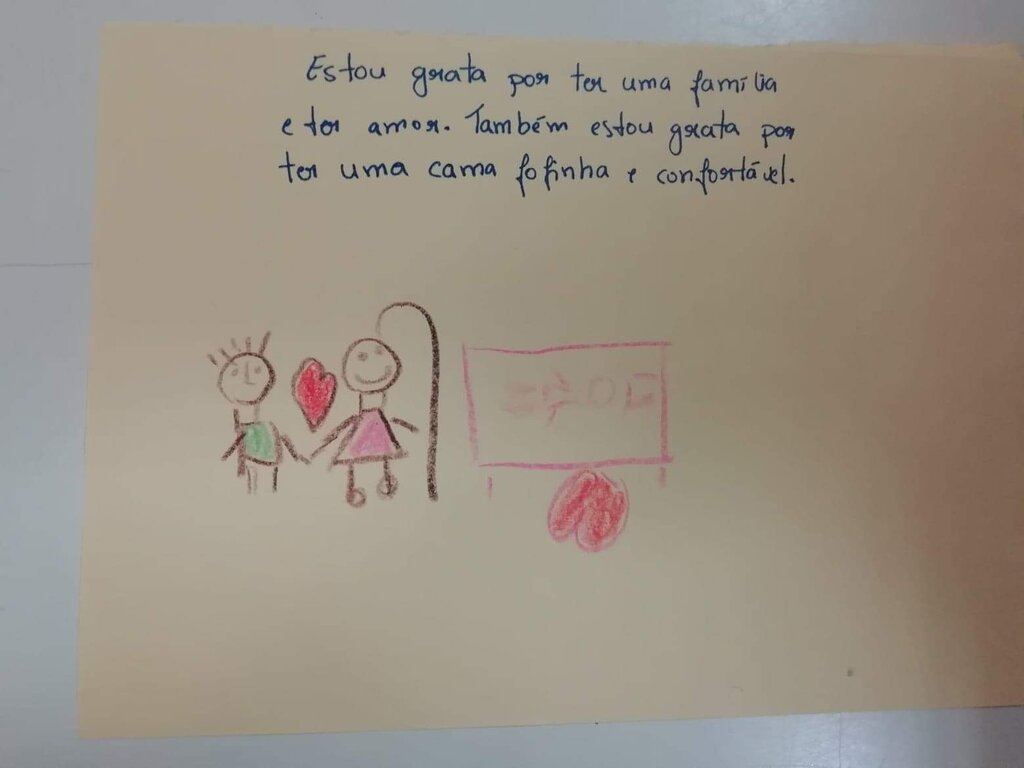 Estou grata por ter uma família
e ter amor. Também estou grata por
ter uma cama fofinha e confortável.